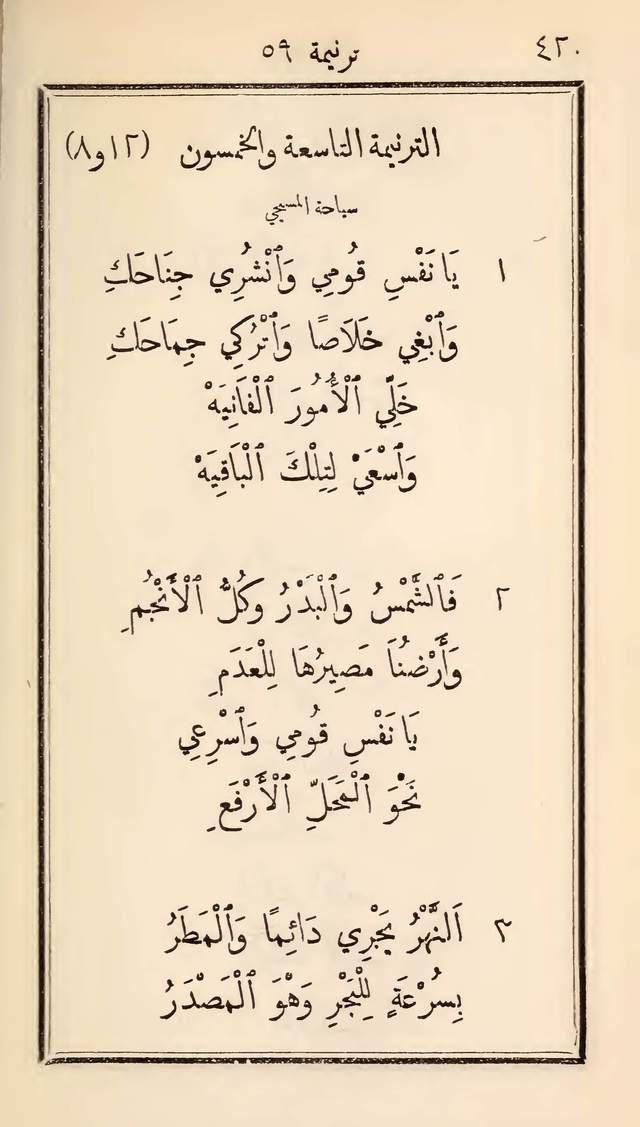 ٤٢٠ ترنيمة ٥٩
الترنيمة التاسعة والخمسون (١٢ و٨)
سياحة المسيحي
١ يَا نَفْسِ قُومِي وَٱنْشُرِي جِنَاحَكِ
وَٱبْغِي خَلَاصًا وَٱتْرُكِي جِمَاحَكِ
خَلِّي ٱلْأُمُورَ ٱلْفَانِيَهْ
وَٱسْعَيْ لِتِلْكَ ٱلْبَاقِيَهْ
٢ فَٱلشَّمْسُ وَٱلْبَدْرُ وَكُلُّ ٱلْأَنْجُمِ
وَأَرْضُنَا مَصِيرُهَا لِلْعَدَمِ
يَا نَفْسِ قُومِي وَٱسْرِعِي
نَحْوَ ٱلْمَحَلِّ ٱلْأَرْفَعِ
٣ اَلنَّهْرُ يَجْرِي دَائِمًا وَٱلْمَطَرُ
بِسُرْعَةٍ لِلْبَحْرِ وَهْوَ ٱلْمَصْدَرُ